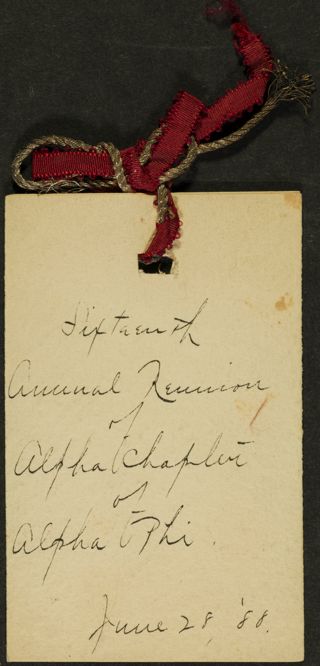 Sixteenth
Annual Reunion
of
Alpha Chapter
of
Alpha Phi.
June 28, '88.